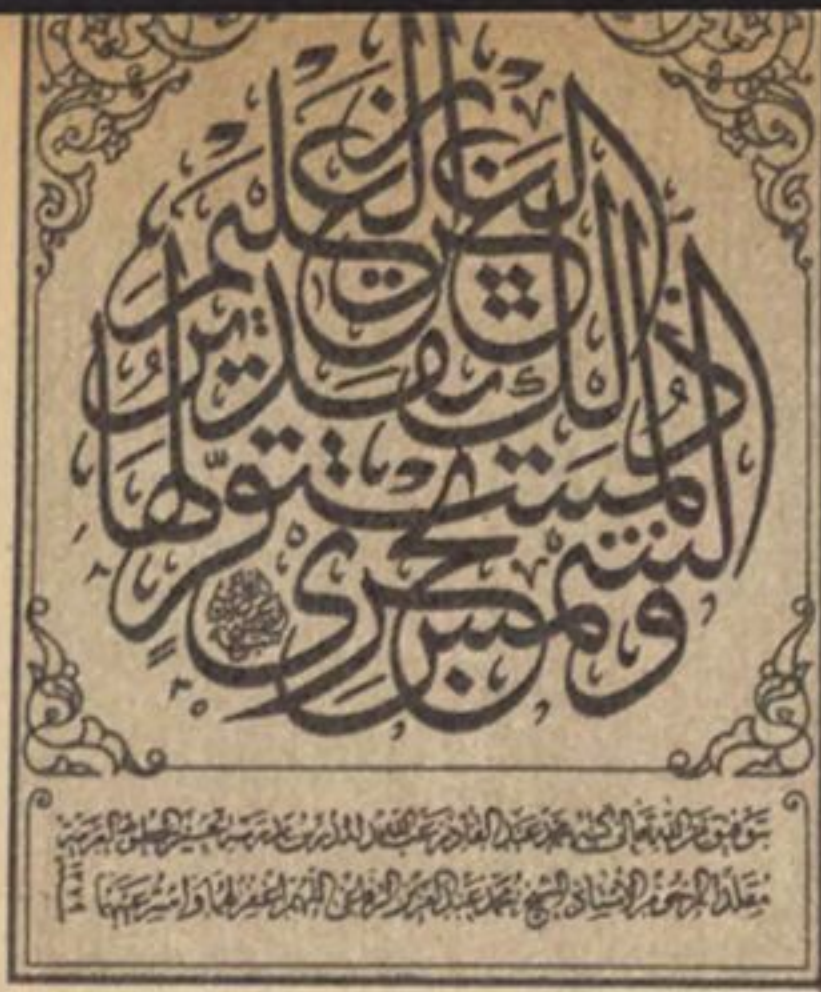 والشمس تجري لمستقر لها ذلك تقدير العزيز العليم
بتوفيق من الله تعالى كتبه محمد عبد القادر عبد الله المدرس بمدرسة تحسين الخطوط العربية
مقلدا المرحوم الأستاذ الشيخ محمد عبد العزيز الرفاعي اللهم اغفر لهما واستر عيبهما